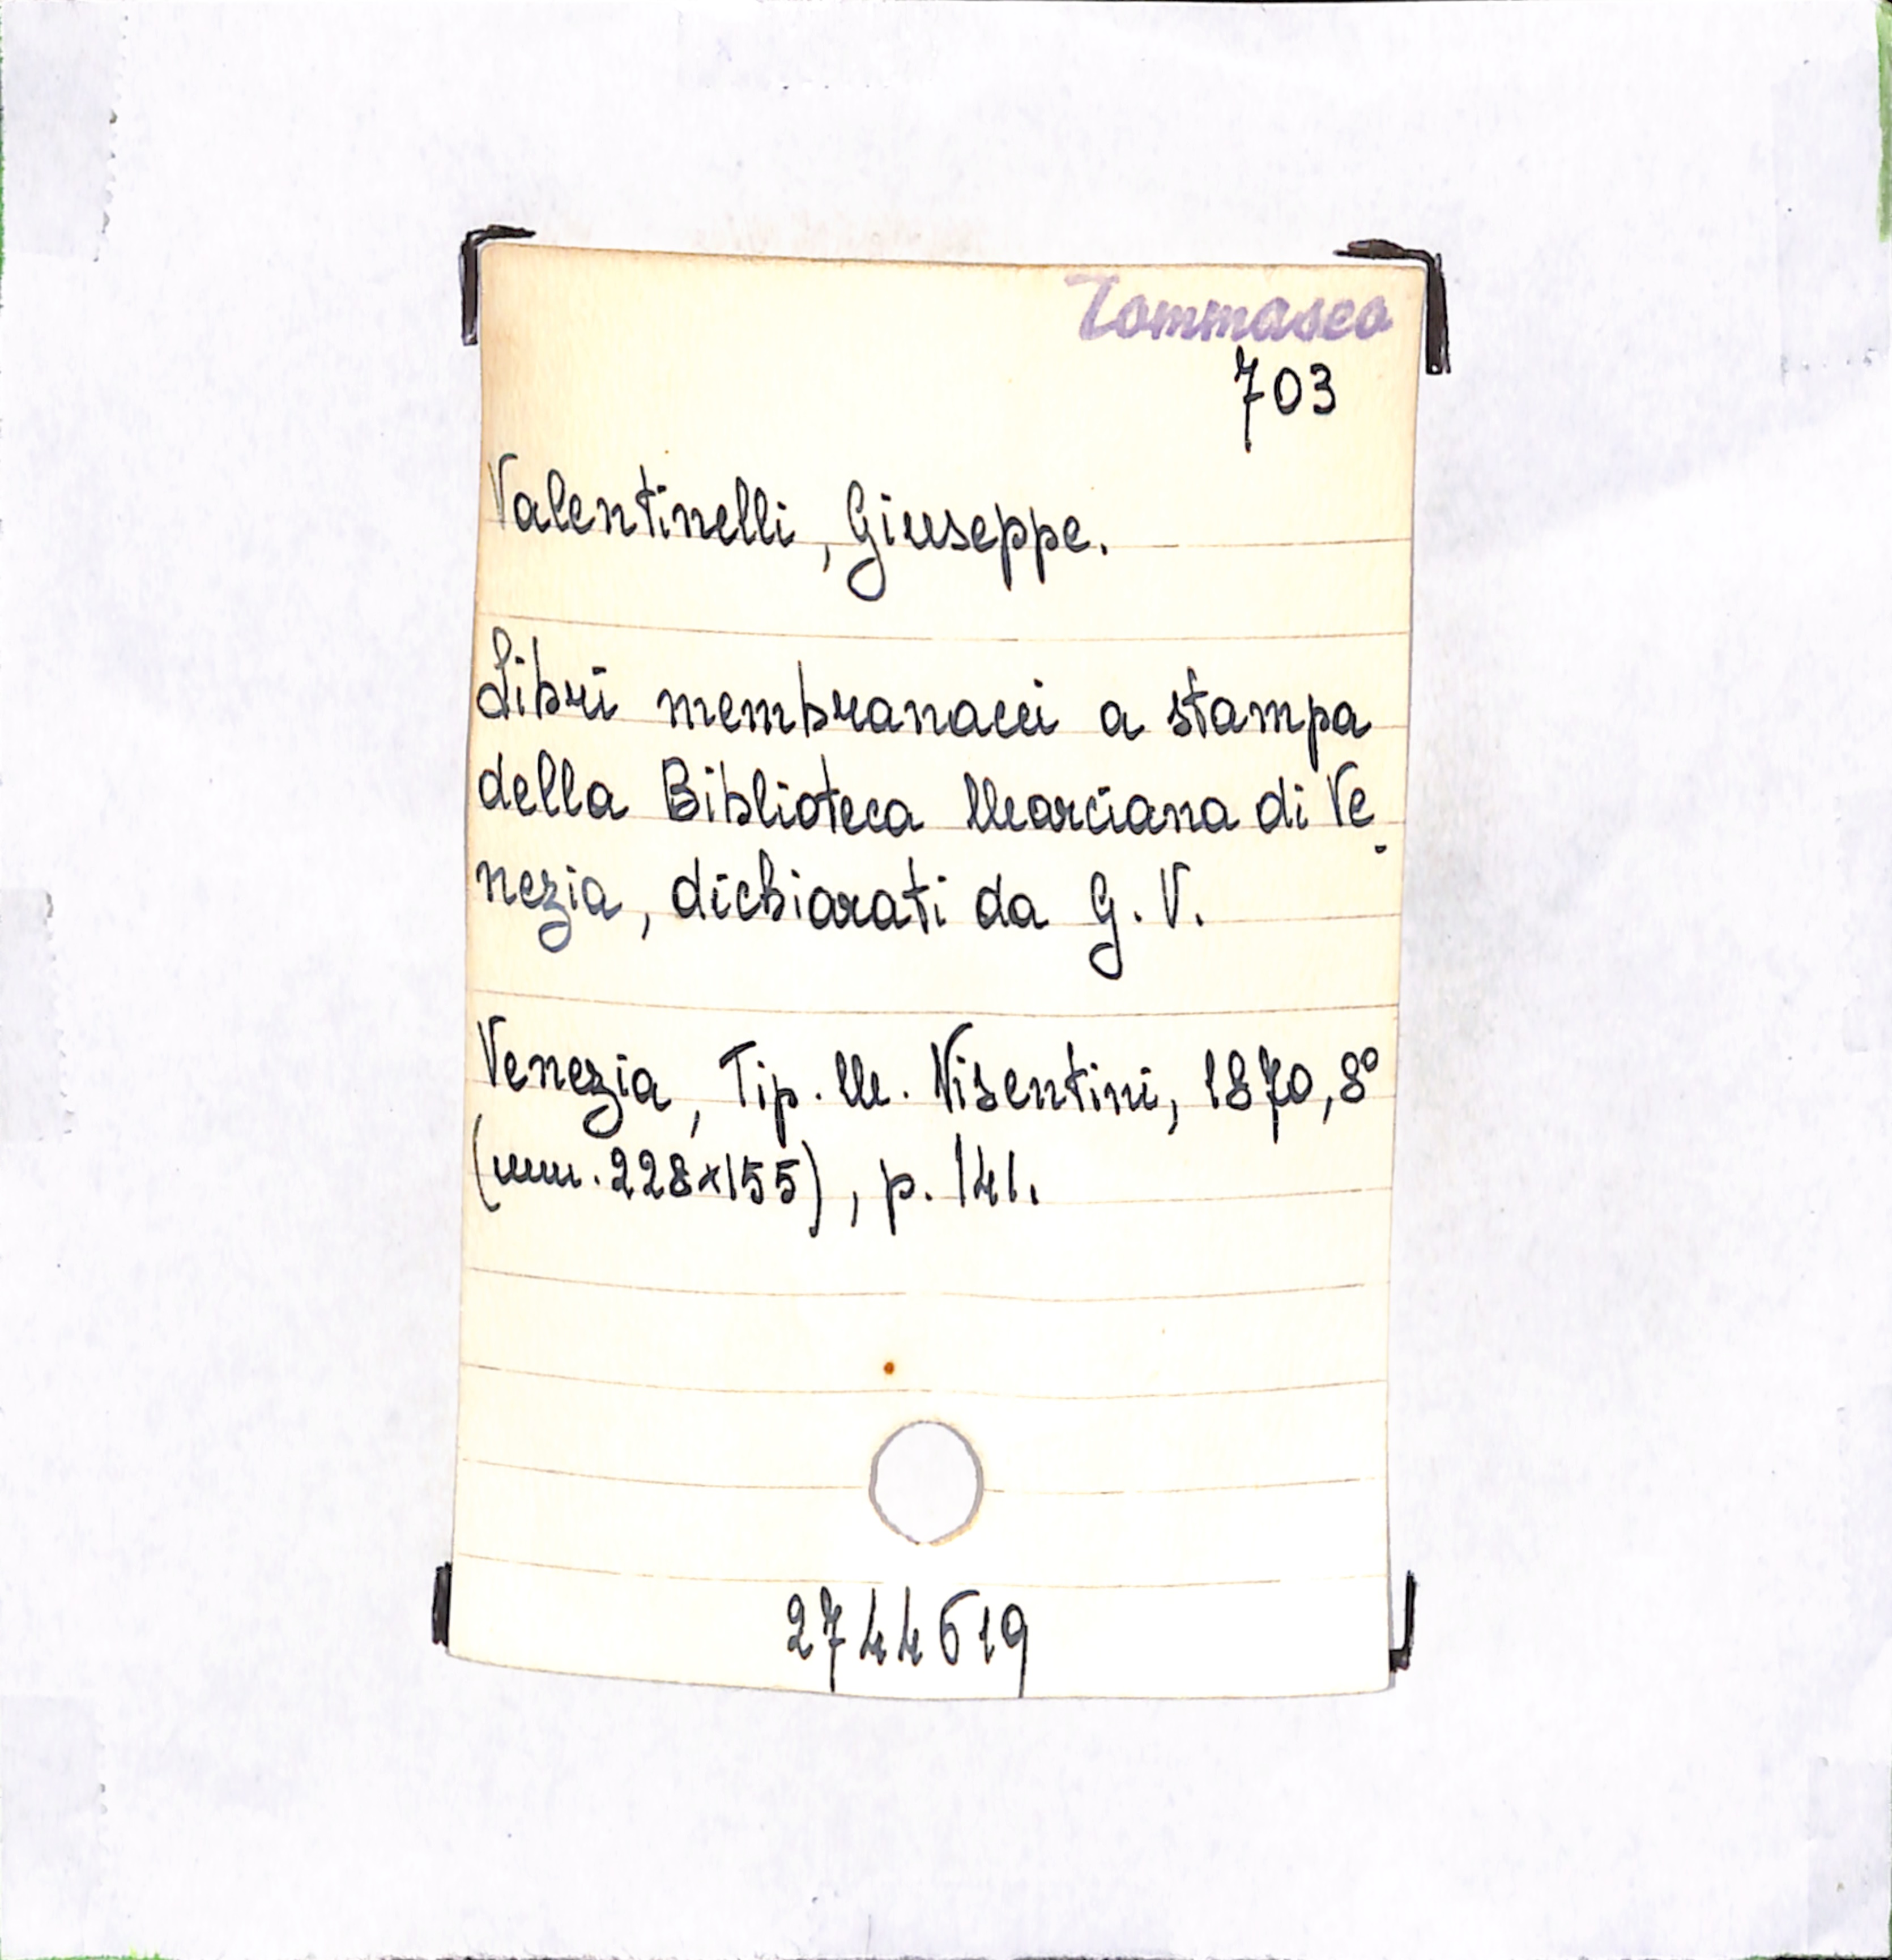 Tommaseo
703
Valentinelli, Giuseppe.
Libri membranacei a stampa
della Biblioteca Marciana di Ve-
nezia, dichiarati da G. V.
Venezia, Tip. M. Visentini, 1870, 8°
(mm. 228×155), p. 141.
2744619